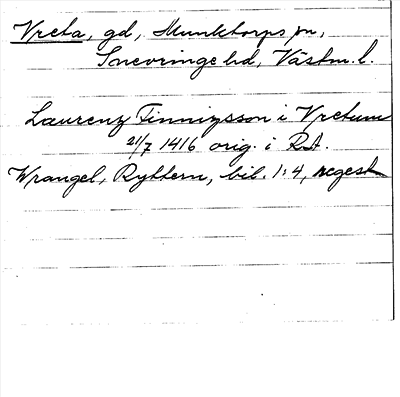 Vreta, gd, Munktorps sn,
Snevringe hd, Västm. l.
Laurenz Finnizsson i Vretum
21/7 1416 orig. i RA.
Wrangel, Ryttern, bil. 1:4, regest